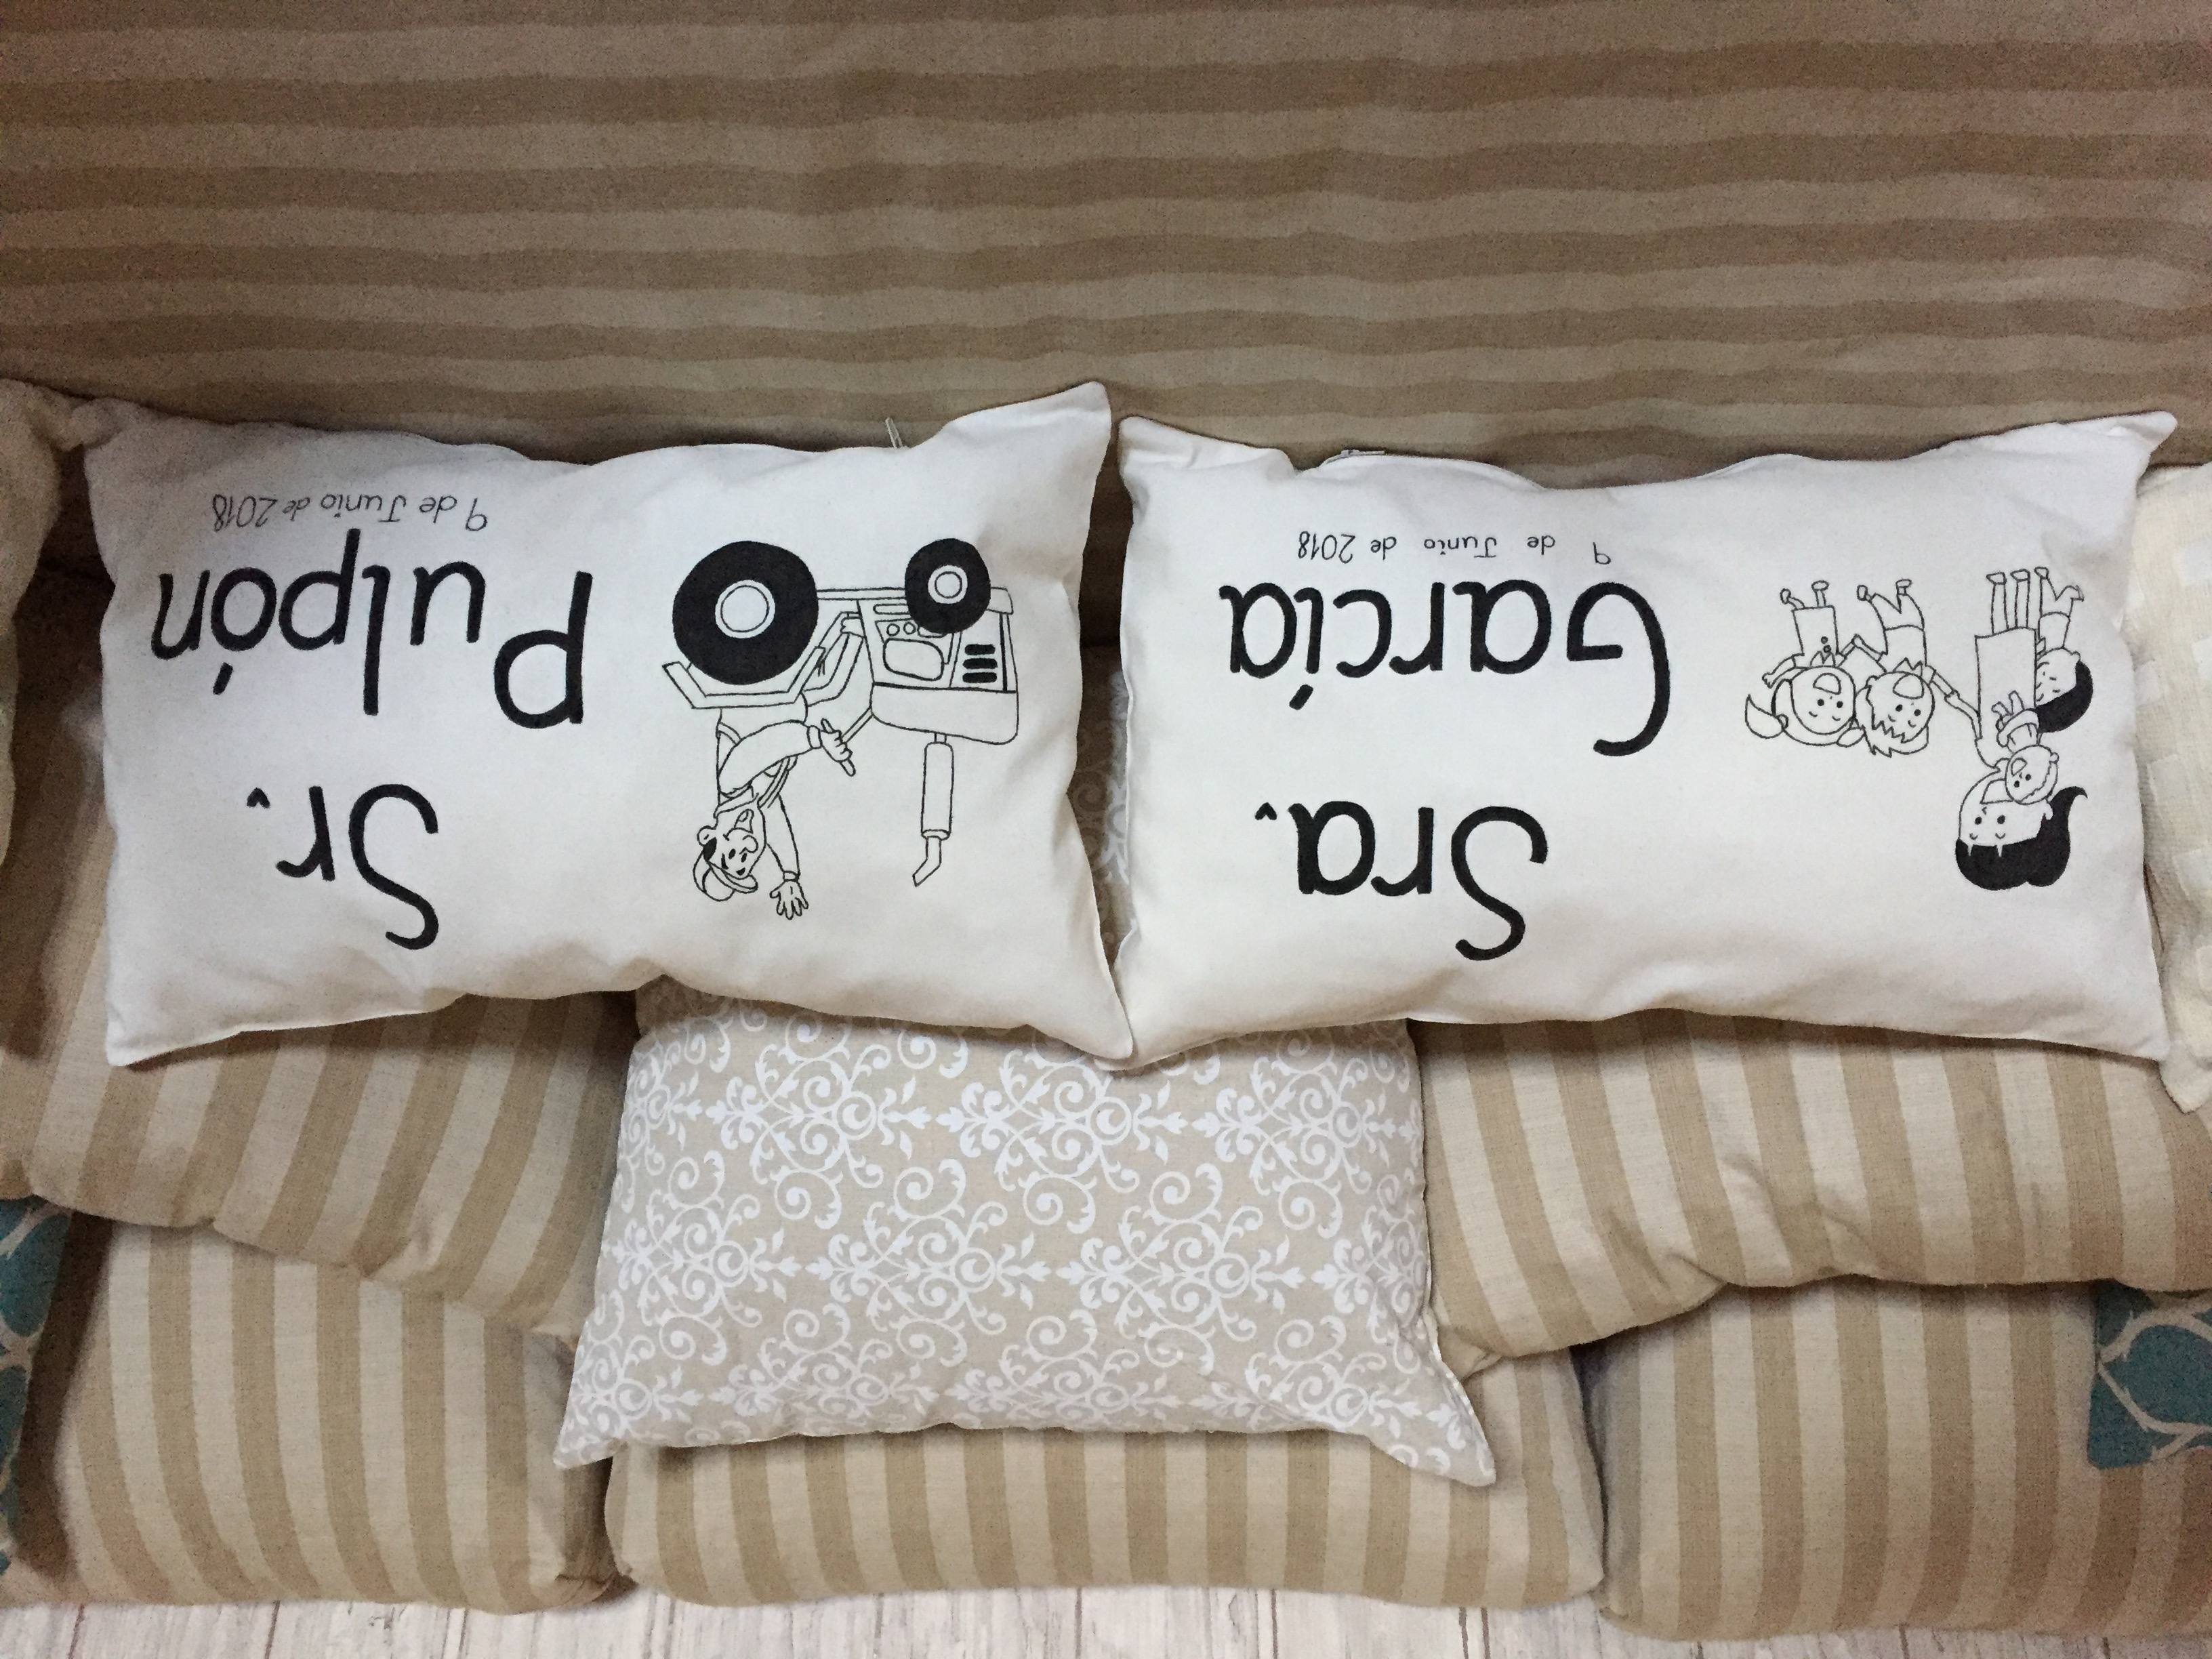 Sra.
García
9 de Junio de 2018
Sr.
Pulpón
9 de Junio de 2018